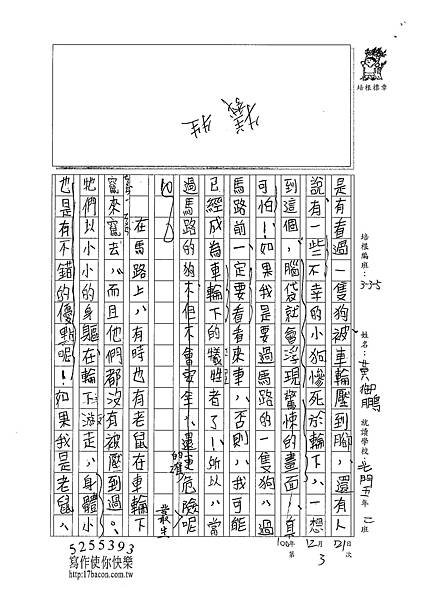 犧
牲
培根標章
培根編班：335
姓名：黃
就讀學校：北門五年二班
100年12月21日
第3次
是有看過一隻狗被車輪壓到腳，還有人
說有一些不幸的小狗慘死於輪下，一想
到這個，腦袋就會浮現驚悚的畫面！真
可怕！如果我是要過馬路的一隻狗，過
馬路前一定要看看來車，否則，我可能
已經成為車輪下的犧牲者了！所以，當
過馬路的狗不但不會安全，還更危險呢
的確
叢生
在馬路上，有時也有老鼠在車輪下
竄來竄去，而且他們都沒有被壓到過。
牠們以小小的身軀在輪下游走，身體小
也是有不錯的優點呢！如果我是老鼠，
5255393
寫作使你快樂
http://17bacon.com.tw